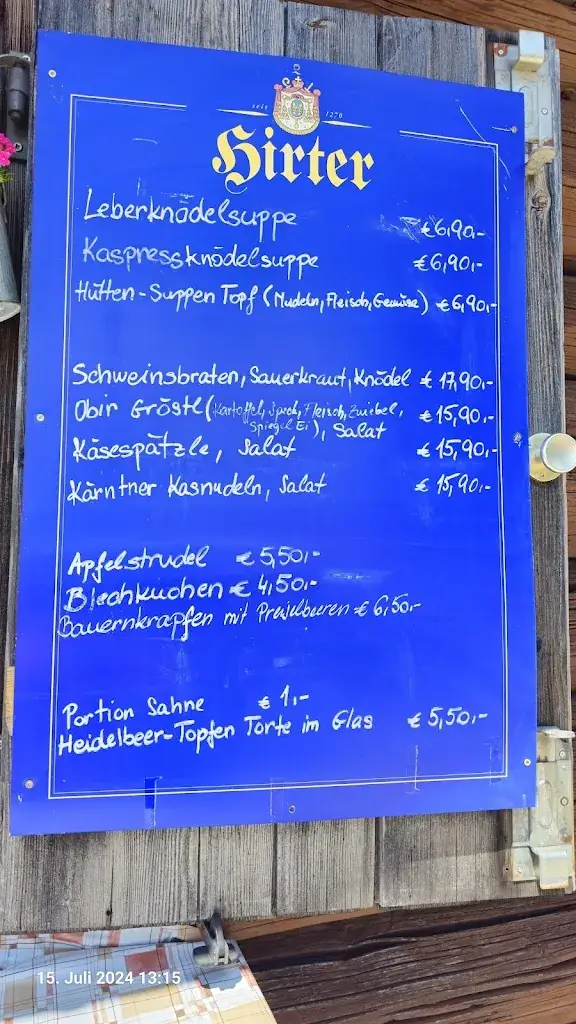 seit 1270
Hirter
Leberknödelsuppe €6,90,-
Kaspressknödelsuppe €6,90,-
Hütten-Suppen Topf (Nudeln, Fleisch, Gemüse) €6,90,-
Schweinsbraten, Sauerkraut, Knödel € 17,90,-
Obir Gröstl (Kartoffel, Speck, Fleisch, Zwiebel, € 15,90,-
Spiegel Ei), Salat
Käsespätzle, Salat € 15,90,-
Kärntner Kasnudeln, Salat € 15,90,-
Apfelstrudel € 5,50,-
Blechkuchen € 4,50,-
Bauernkrapfen mit Preiselbeeren € 6,50,-
Portion Sahne € 1,-
Heidelbeer-Topfen Torte im Glas € 5,50,-
15. Juli 2024 13:15